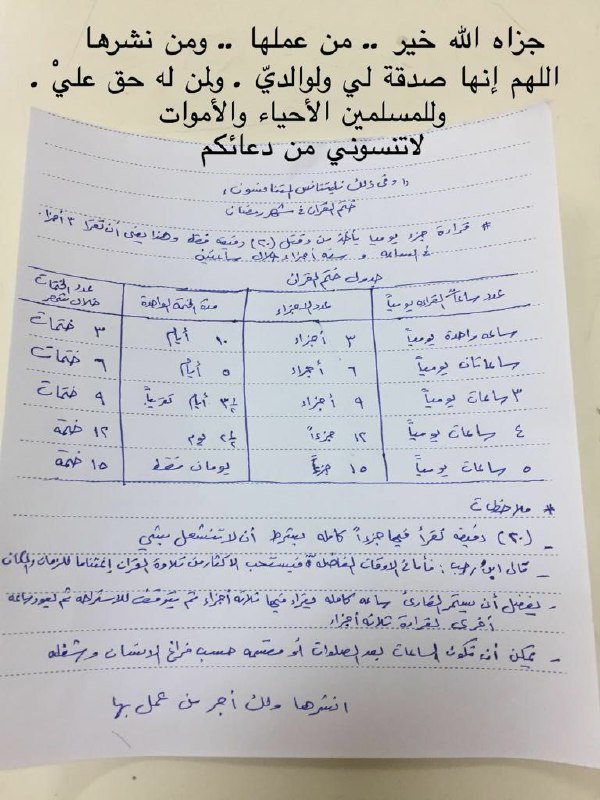 جزاه الله خير .. من عملها .. ومن نشرها
اللهم إنها صدقة لي ولوالديّ . ولمن له حق عليْ .
وللمسلمين الأحياء والأموات
لاتنسوني من دعائكم
(وفي ذلك فليتنافس المتنافسون)
ختم القرآن في شهر رمضان
* قراءة جزء يومياً يأخذ من وقتك (٢٠) دقيقه فقط وهذا يعني أن تقرأ ٣ أجزاء
في الساعه و سته أجزاء خلال ساعتين
جدول ختم القرآن
عدد ساعات القراءه يومياً	عدد الاجزاء	مدة الختمة الواحدة	عدد الختمات خلال شهر
ساعه واحدة يومياً	٣ أجزاء	١٠ أيام	٣ ختمات
ساعاتان يومياً	٦ أجزاء	٥ أيام	٦ ختمات
٣ ساعات يومياً	٩ أجزاء	٣ ١/٢ أيام تقريباً	٩ ختمات
٤ ساعات يومياً	١٢ جزءاً	٢ ١/٢ يوم	١٢ ختمة
٥ ساعات يومياً	١٥ جزءاً	يومان فقط	١٥ ختمة
* ملاحظات
- (٢٠) دقيقه تقرأ فيها جزءاً كامله بشرط أن لا تنشغل بشيء
- قال ابن رجب : فأما في الاوقات الفاضلة فيستحب الاكثار من تلاوة القرآن إغتناما للزمان والمكان
- يفضل أن يستمر القارئ ساعه كامله يقرأ فيها ثلاثه أجزاء ثم يتوقف للاستراحه ثم يعود ساعه
أخرى لقراءة ثلاثه أجزاء
- يمكن أن تكون الساعات بعد الصلوات أو مقسمه حسب فراغ الانسان وشغله
انشرها ولك أجر من عمل بها